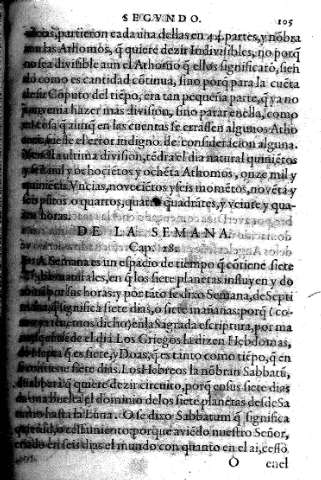 SEGVNDO. 105
partieron cada vna dellas en 44. partes, y nõbra
las Athomos, q̃ quiere dezir Indiuisibles, no porq̃
no sea diuisible aun el Athomo q̃ ellos significatõ, sien
do como es cantidad cõtinua, sino porq̃ para la cuẽta
Computo del tiẽpo, era tan pequeña parte, q̃ ya no
conuenia hazer mas diuisión, sino parar en ella, como
cosa q̃ aunq̃ en las cuentas se errassen algunos Atho
mos, fuesse el error indigno de consideracion alguna.
esta vltima diuisiõ, tẽdra el dia natural quiniẽtos
y seis mil y ochocietos y ochẽta Athomos, onze mil y
quiniẽtas Vncias, nouecietos y seis momẽtos, nouẽta y
seis pũtos o quartos, quatro quadrãtes, y veinte y qua
tro horas.
DE LA SEMANA.
Cap. 28.
LA Semana es vn espacio de tiempo q̃ cõtiene siete
dias naturales, en q̃ los siete planetas influyen y do
minan por sus horas: y por tãto se dixo Semana, de Septi
mana, q̃ significa siete dias, o siete mañanas: porq̃ (co
mo ya tenemos dicho) en la Sagrada escriptura, por ma
ñana se entiẽde el dia. Los Griegos la dizen Hebdomas,
de Hepta q̃ es siete, y Doas, q̃ es tanto como tiẽpo, q̃ en
si contiene siete dias. Los Hebreos la nõbran Sabbatũ,
q̃ quiere dezir circuito, porq̃ en estos siete dias
da vna buelta el dominio de los siete planetas desde Sa
turno hasta la Luna. O se dixo Sabbatum q̃ significa
quietud, o cessamiento: porque auiẽdo nuestro Señor,
criado en seis dias el mundo con quanto en el ai, cessò
O enel